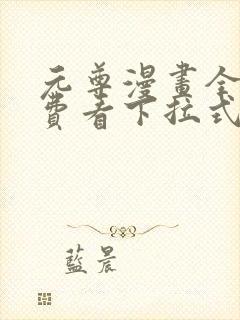 元尊漫畫全
費看下拉式
藍晨